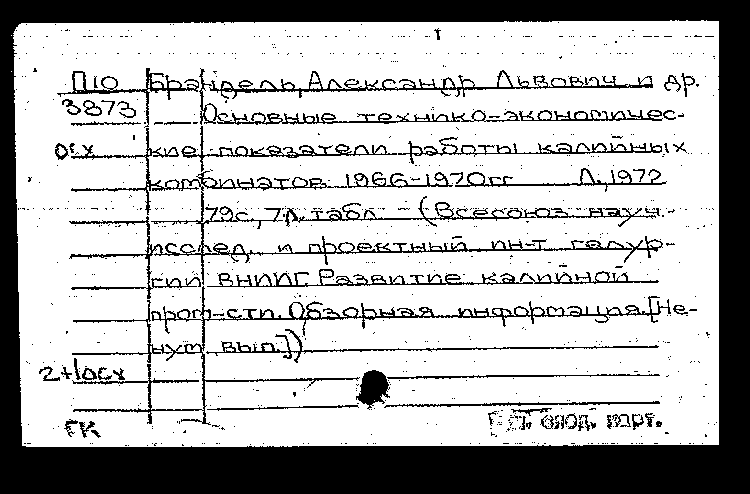 П10 Брандель, Александр Львович и др.
3873 Основные технико-экономичес-
осх кие показатели работы калийных
комбинатов 1966-1970гг Л., 1972
79с, 7л. табл (Всесоюз науч.-
исслед. и проектный ин-т галур-
гии ВНИИГ Развитие калийной
пром-сти. Обзорная информация. [Не-
нум вып.])
2+1осх
ГК